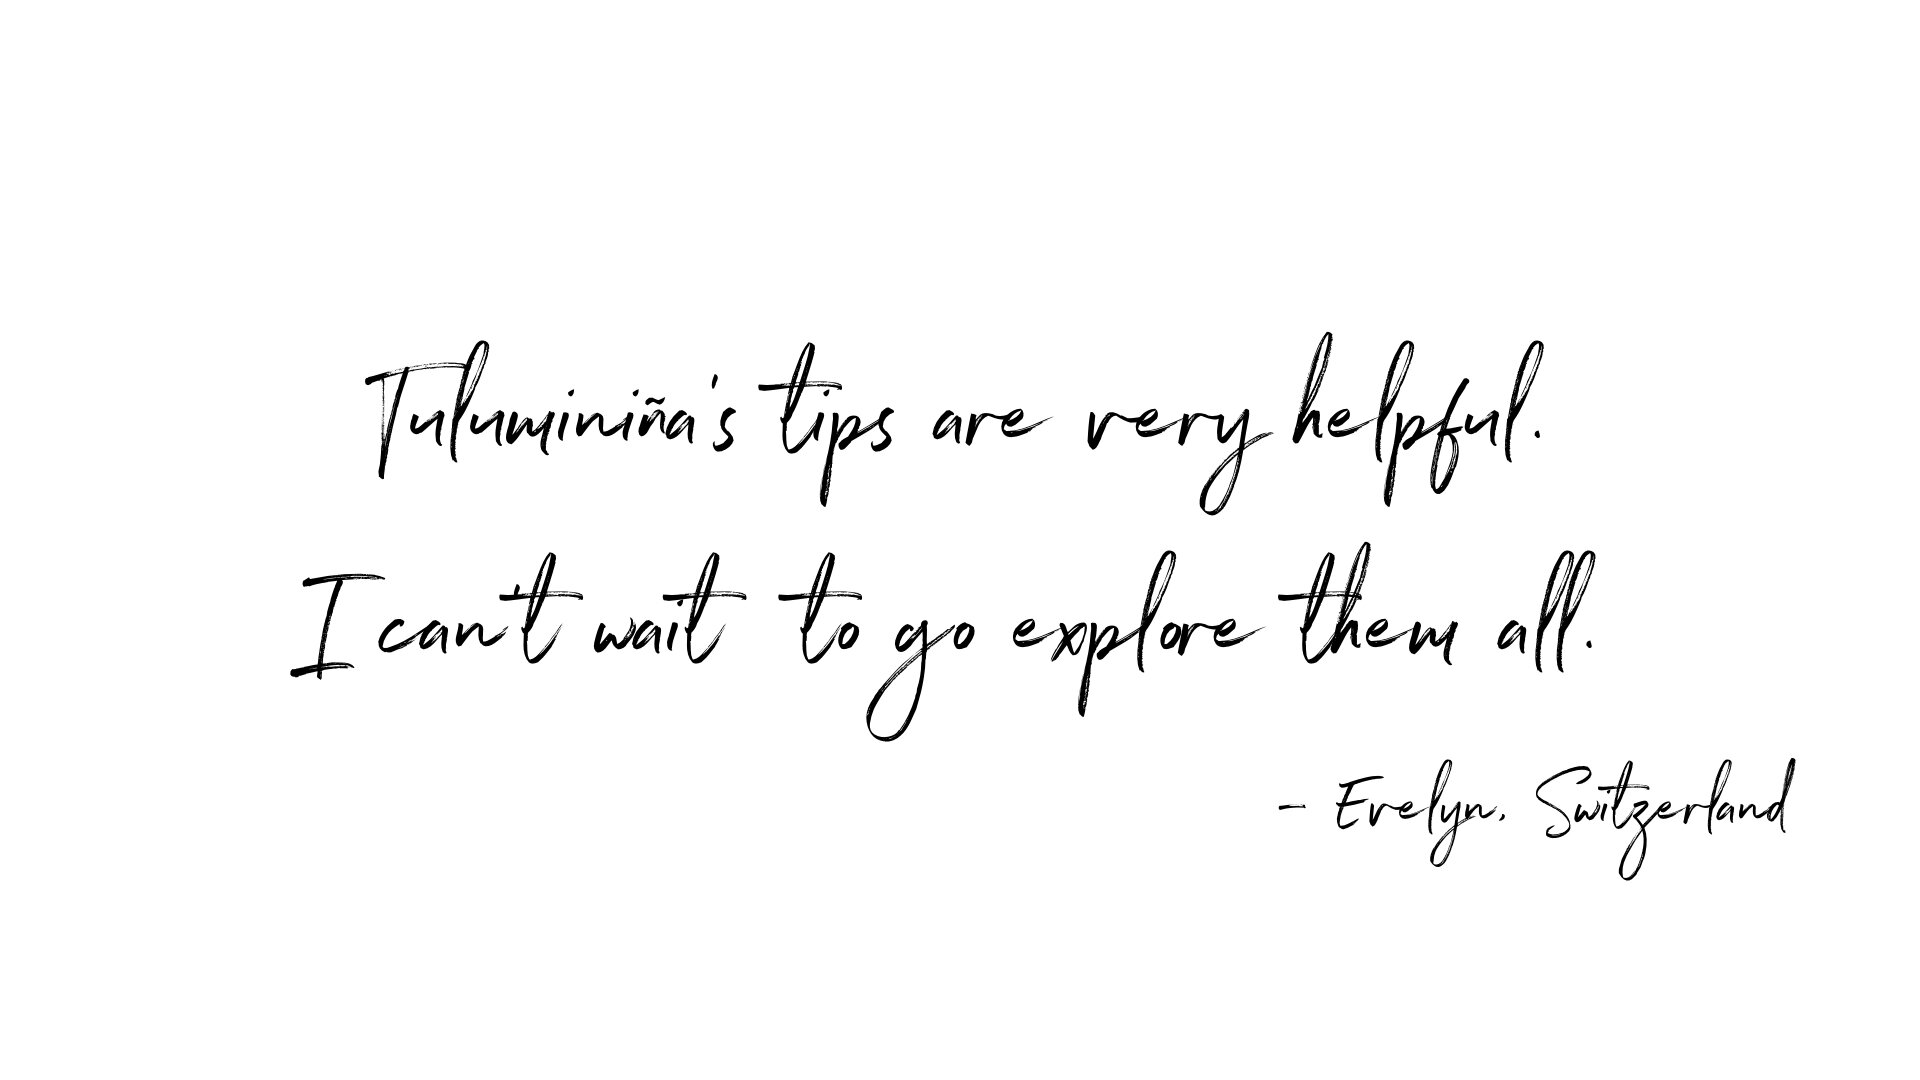 Tuluminiña's tips are very helpful.
I can't wait to go explore them all.
- Evelyn, Switzerland